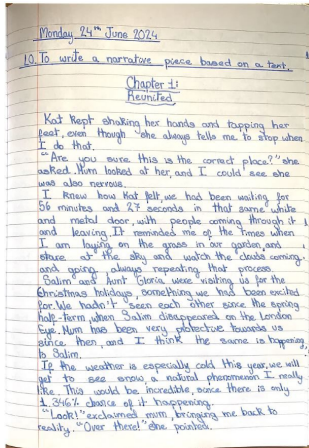 Monday 24th June 2024
LO. To write a narrative piece based on a text.
Chapter 1:
Reunited
Kat kept shaking her hands and tapping her
feet, even though she always tells me to stop when
I do that.
"Are you sure this is the correct place?" she
asked. Mum looked at her, and I could see she
was also nervous.
I knew how Kat felt, we had been waiting for
56 minutes and 27 seconds in that same white
and metal door, with people coming through it
and leaving. It reminded me of the times when
I am laying on the grass in our garden, and
stare at the sky and watch the clouds coming
and going, always repeating that process.
Salim and Aunt Gloria were visiting us for the
Christmas holidays, something we had been excited
for. We hadn't seen each other since the spring
half-term, when Salim disappeared on the London
Eye. Mum has been very protective towards us
since then, and I think the same is happening
to Salim.
If the weather is especially cold this year, we will
get to see snow, a natural phenomenon I really
like. This would be incredible, since there is only
1.346% chance of it happening.
"Look!" exclaimed mum, bringing me back to
reality. "Over there!" she pointed.